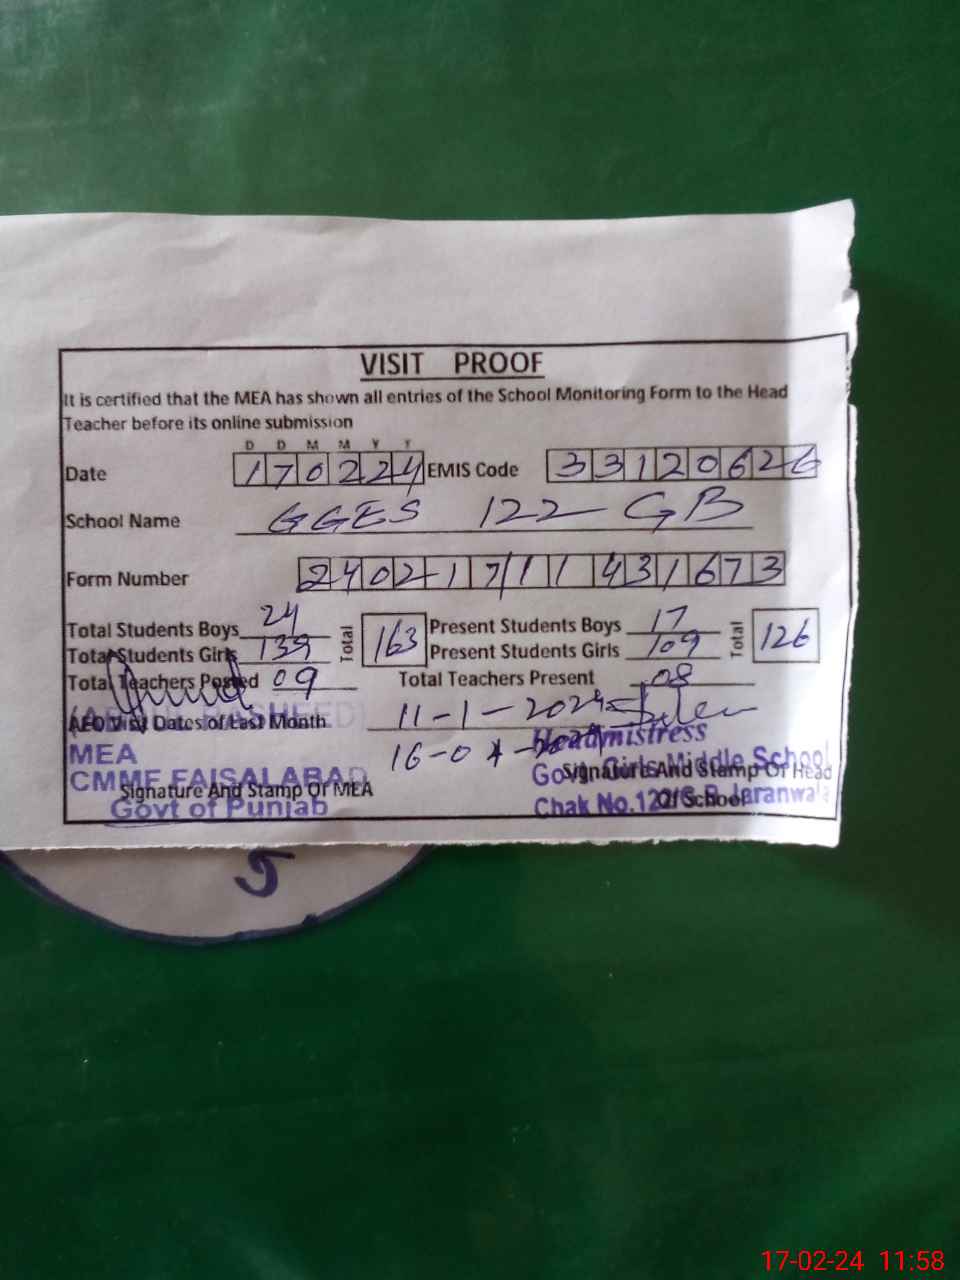 VISIT PROOF
It is certified that the MEA has shown all entries of the School Monitoring Form to the Head
Teacher before its online submission
D D M M Y Y
Date 170224 EMIS Code 33120626
School Name GGES 122 GB
Form Number 2402171143 1673
Total Students Boys 24 Total 163 Present Students Boys 17 Total 126
Total Students Girls 139 Present Students Girls 109
Total Teachers Posted 09 Total Teachers Present 08
AEO Visit Dates of Last Month 11-1-2024
Headmistress
MEA
Govt. Girls Middle School
Signature And Stamp Of Head
CMMF FAISALABAD
Signature And Stamp Of MEA
Of School
Chak No.122/G.B Jaranwala
Govt of Punjab
5
17-02-24 11:58